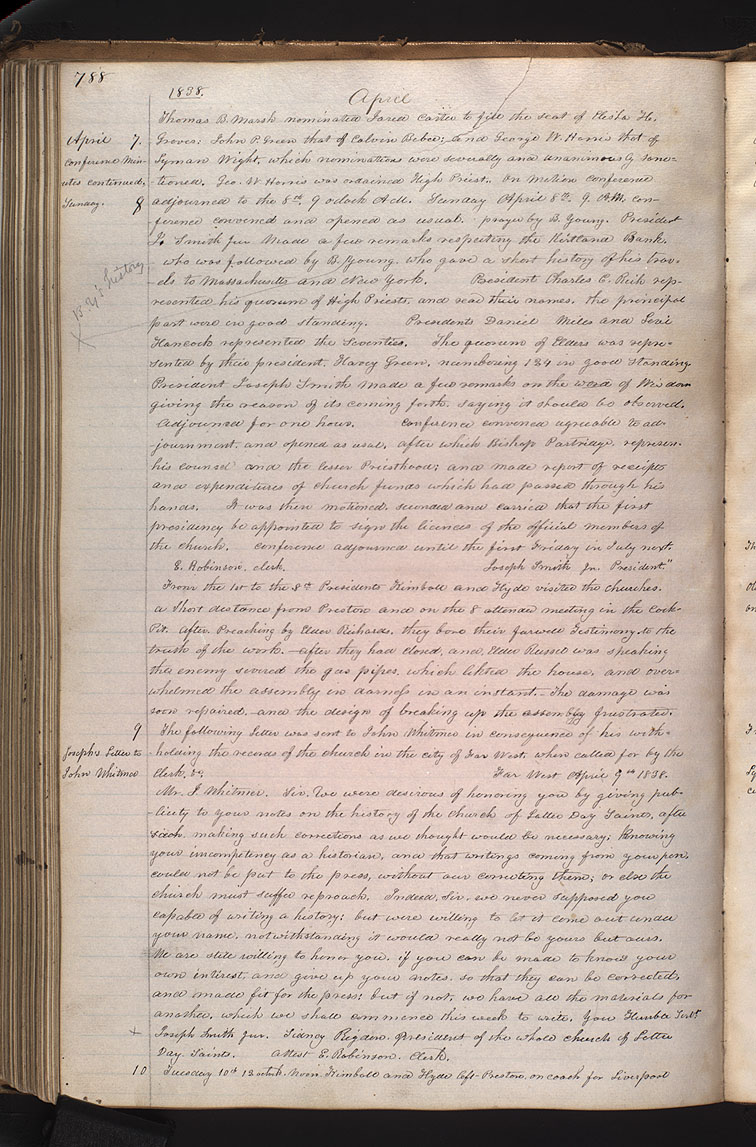 788
1838.
April
Thomas B. Marsh nominated Jared Carter to fill the seat of Elisha H.
April 7. Groves; John P. Green that of Calvin Bebee; and George W. Harris that of
Conference Min- Lyman Wight, which nominations were severally and unanimously sanc-
utes continued. tioned. Geo. W. Harris was ordained High Priest. On motion conference
Sunday. 8 adjourned to the 8th. 9 oclock A.M. Sunday April 8th. 9. A.M. con-
ference convened and opened as usual. prayer by B. Young. President
J. Smith Jun Made a few remarks respecting the Kirtland Bank.
who was followed by B. Young. who gave a short history of his trav-
B. Y's history
els to Massachusetts and New York. President Charles C. Rich rep-
resented his quorum of High Priests, and read their names. the principal
part were in good standing. Presidents Daniel Miles and Levi
Hancock represented the Seventies. The quorum of Elders was repre-
sented by their president, Harvey Green, numbering 124 in good standing.
President Joseph Smith Made a few remarks on the word of Wisdom
giving the reason of its coming forth, saying it should be observed.
Adjourned for one hour. Conference convened agreeable to ad-
journment, and opened as usual. after which Bishop Partridge, represen-
his council and the lesser Priesthood; and made report of receipts
and expenditures of church funds which had passed through his
hands. It was then motioned, seconded and carried that the first
presidency be appointed to sign the licences of the official members of
the church. conference adjourned until the first Friday in July next.
E. Robinson, clerk. Joseph Smith Jr. President."
From the 1st to the 8th Presidents Kimball and Hyde visited the churches.
a short distance from Preston and on the 8 attended meeting in the Cock-
Pit. after Preaching by Elder Richards, they bore their farwell Testimony to the
truth of the work. after they had closed, and Elder Russel was speaking
the enemy severed the gas pipes, which lifted the house, and over-
whelmed the assembly in darness in an instant. The damage was
soon repaired. and the design of breaking up the assembly frustrated.
9 The following Letter was sent to John Whitmer in consequence of his with-
Joseph's Letter to holding the records of the church in the city of Far West. when called for by the
John Whitmer Clerk, &c Far West April 9th 1838.
Mr. J. Whitmer. Sir, We were desirous of honoring you by giving pub-
licity to your notes on the history of the church of Latter Day Saints, after
making such corrections as we thought would be necessary; Knowing
your incompetency as a historian, and that writings coming from your pen,
could not be put to the press, without our correcting them; or else the
church must suffer reproach. Indeed, Sir, we never supposed you
capable of writing a history; but were willing to let it come out under
your name, notwithstanding it would really not be yours but ours.
We are still willing to honor you, if you can be made to know your
own interest, and give up your notes, so that they can be corrected,
and made fit for the press; but if not, we have all the materials for
another, which we shall commence this week to write. Your Humble Servts
x Joseph Smith Jun. Sidney Rigdon. Presidents of the whole church of Latter
Day Saints. Attest E. Robinson. Clerk.
10 Tuesday 10th 12 oclock Noon Kimball and Hyde left Preston, on coach for Liverpool